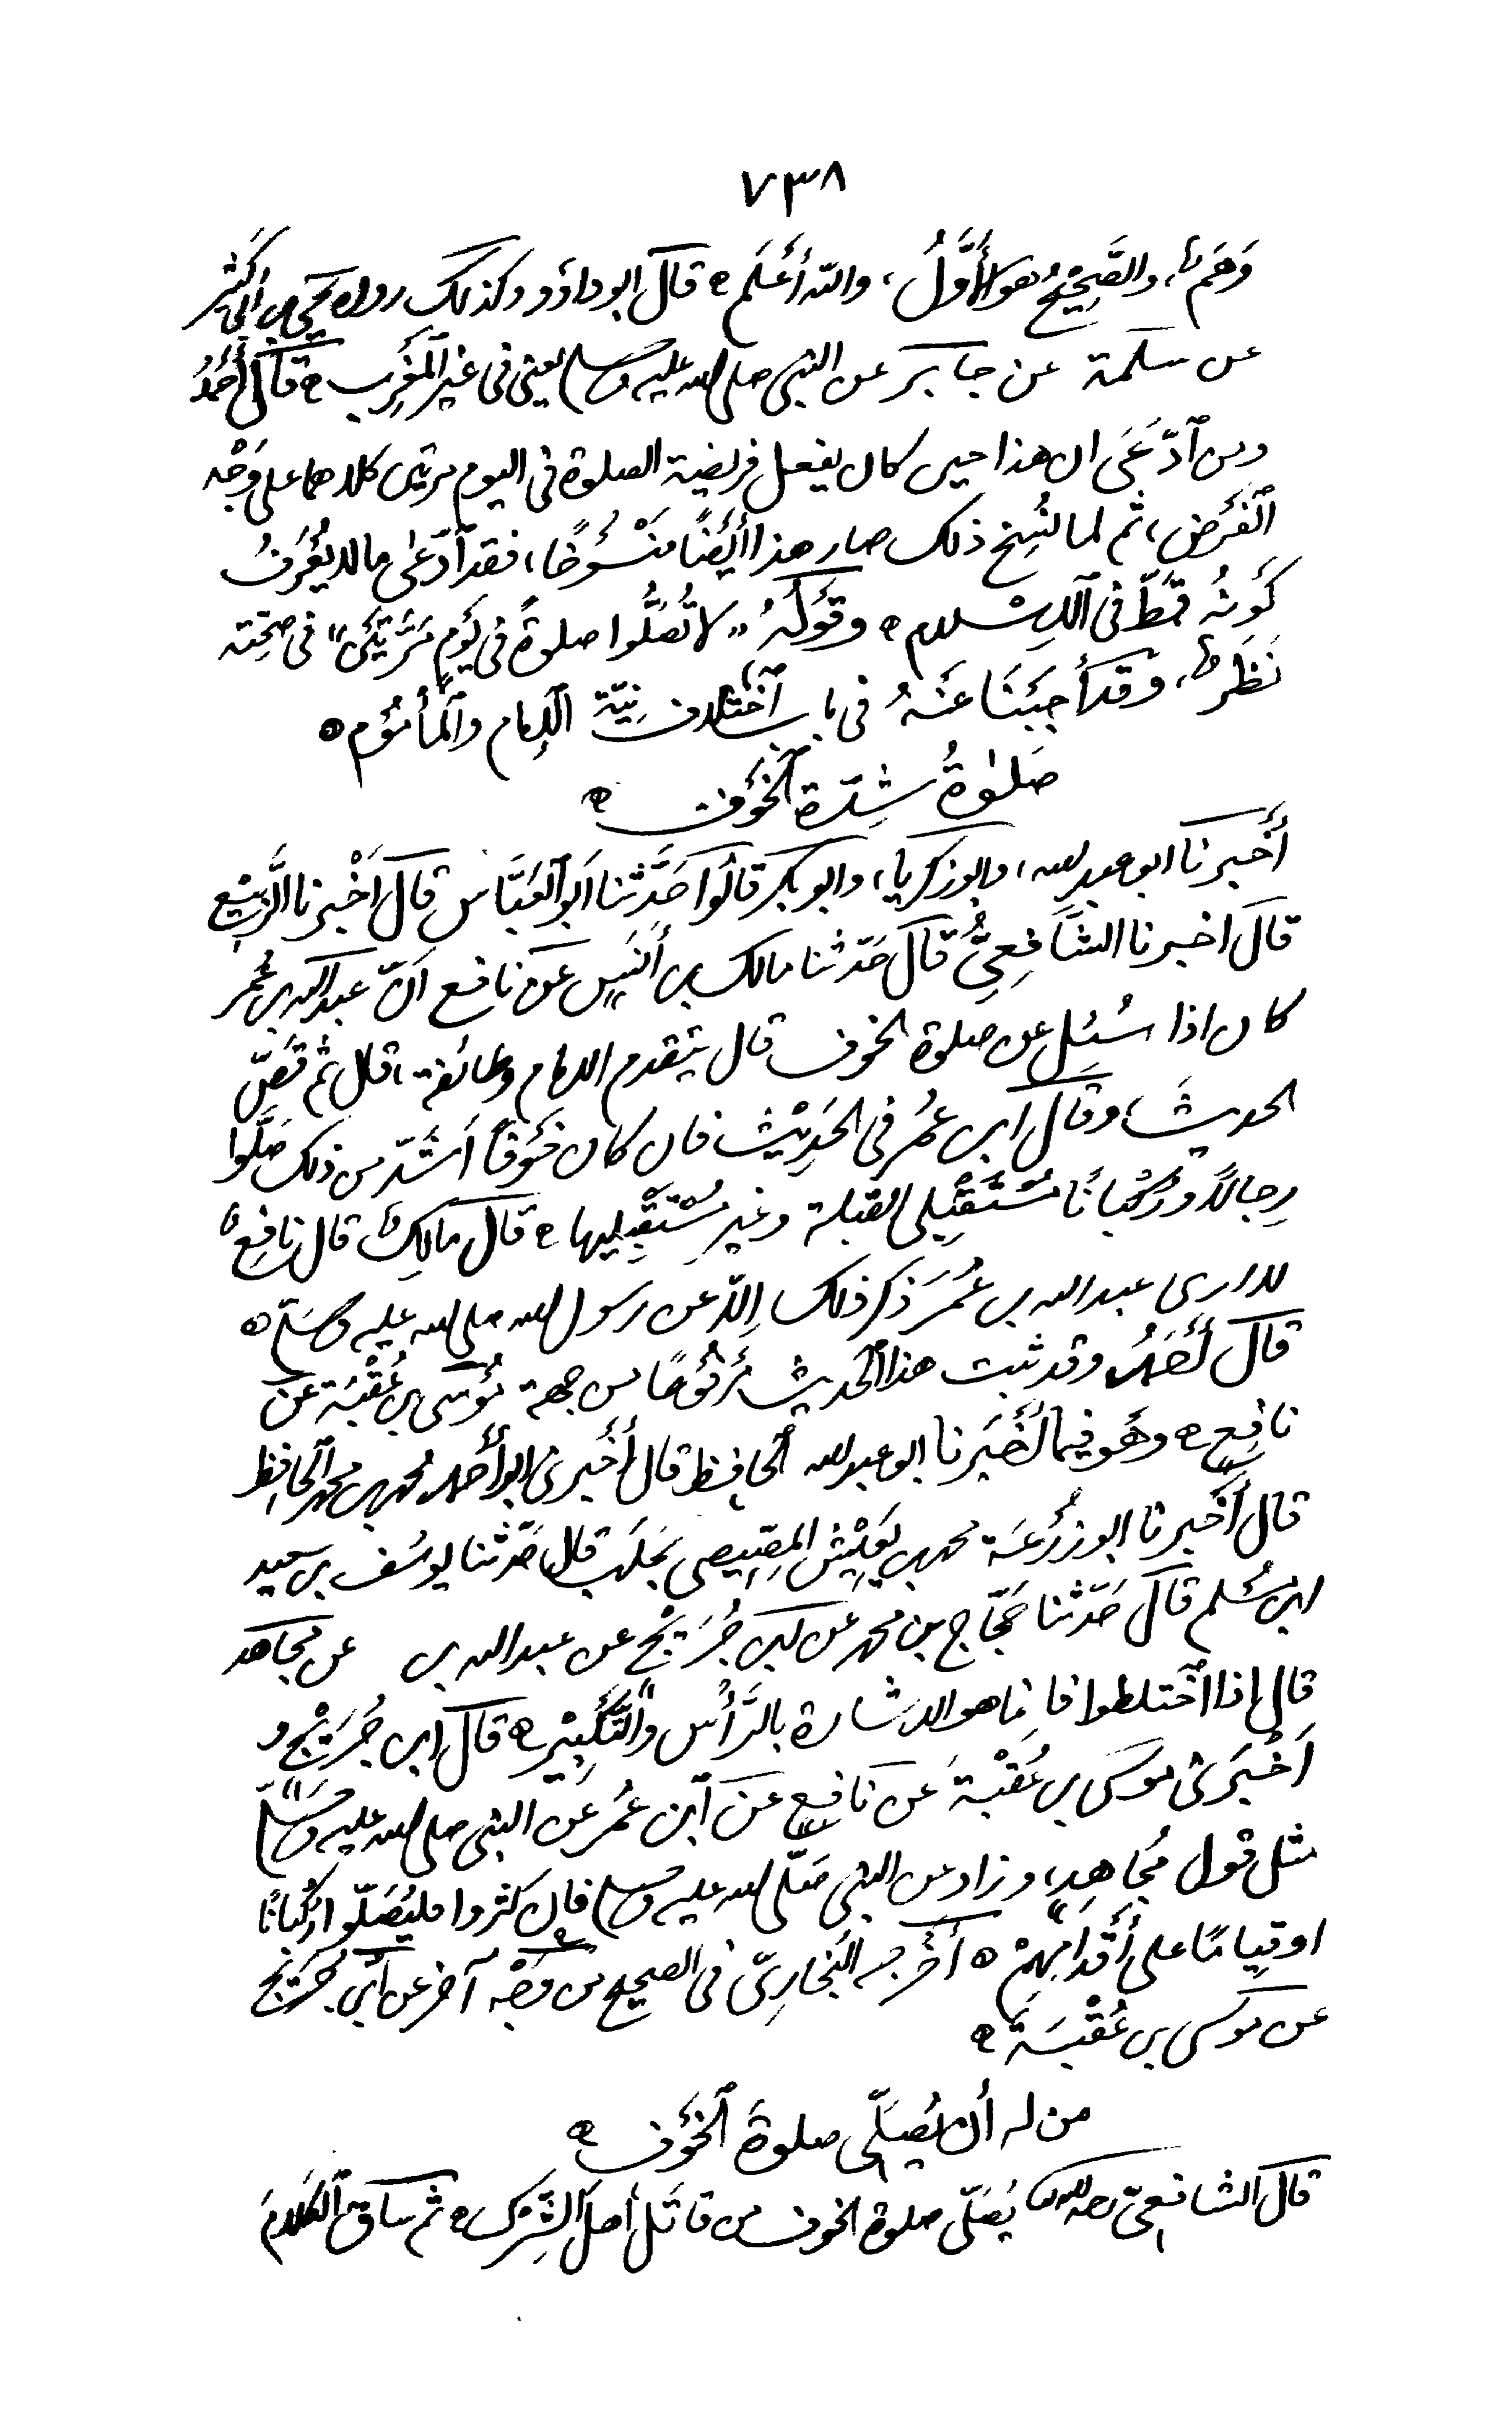 ٧٣٨
وَهَمٌ، والصَّحِيْحُ هو الأَوَّلُ، والله أَعْلَم ٥ قال ابو داوَد وكذلك رواه يحيى بن ابى كَثير
عن سلمة عن جابر عن النبى صلى الله عليه وسلم يعنى فى غير المَغْرِب ٥ قال أَحْمَدُ
ومن ٱدَّعَى ان هذا حين كان يفعل فريضة الصلوة فى اليوم مرتين كلاهما على وَجْه
ٱلفَرْض، ثم لما نُسِخ ذلك صار هذا أَيْضًا مَنْسُوْخًا، فقد ٱدَّعٰى مالا يُعْرَفُ
كَوْنُه قَطّ فى ٱلاِسْلام ٥ وقَوْلُهُ «لا تُصَلُّوا صلوةً فى يَوْمٍ مَرَّتَيْن» فى صِحَّته
نَظَرٌ، وقد أَجَبْنَا عَنْهُ فى باب ٱخْتلاف نِيَّة ٱلاِمام وٱلمَأمُوْم ٥
صَلٰوةُ شِدّة ٱلخَوْف ٥
أَخْبرنا ابو عبد الله، وابو زكريا، وابو بكر قالُوا حَدَّثنا اَبو ٱلعَبَّاس قال اَخْبرنا الرَّبِيْع
قال اخبرنا الشَّافِعِىُّ قال حَدّثنا مالك بن أَنَسٍ عَن نافع اَنّ عبد الله بن عُمَر
كان اذا سُئِل عن صلوة الخوف قال يتقدم الامام وطائفة، قال ثم قَصّ
الحديثَ، وقال ٱبن عُمَر فى الحَدِيْث فان كان خَوْفًا اَشَدّ من ذلك صَلَّوا
رِجالًا ورُكْبانًا مُسْتَقْبِلِى القبلة وغير مُسْتَقْبِلِيها ٥ قال مَالِكٌ قال نافِعٌ
لا ارى عبد الله بن عُمَرَ ذكر ذلك اِلّا عن رسول الله صلى الله عليه وسَلّم ٥
قال أَحْمَدُ وقد ثبت هذا ٱلحَديث مَرْفُوْعًا من جهة مُوْسى بن عُقْبَة عن
نافِع ٥ وهَو فيما أَخْبَرنا ابو عبد الله ٱلحافِظ قال أَخْبرنى ابو أَحْمد محمد بن محمد ٱلحافظ
قال أَخْبرنا ابو زُرْعَة محمد بن يعيش المِصِّيصى بحَلَب قال حَدّثنا يوسُف بن سعيد
ابن مُسْلم قال حَدّثنا حَجّاج بن محمد عن ٱبن جُرَيْج عن عبد الله بن عن مجاهد
قال إذا ٱخْتلطوا فإنما هو الاشارة بالرَّأْس وٱلتَّكْبِيْر ٥ قال ابن جُرَيْج و
اَخْبَرنى موسى بن عُقْبَة عَن نَافعٍ عَن ٱبن عُمَر عَن النبى صلى الله عليه وسَلّم
مثل قول مُجَاهِدٍ، وزاد عن النبى صَلّى الله عليه وسلم فان كثروا فليُصَلّوا رُكْبَانًا
او قِيامًا على أَقْدامِهِمْ ٥ أَخْرجه ٱلبُخارِىّ فى الصحيح من وَجْه آخر عن ٱبن جُرَيْج
عن موسى بن عُقْبَة ٥
من له أن يُصَلّى صلوةَ ٱلخَوْف ٥
قال الشافعىّ رحمه الله يُصَلّى صلوة الخوف من قاتَل أهل الشِّرْك ٥ ثم ساق ٱلكَلامَ